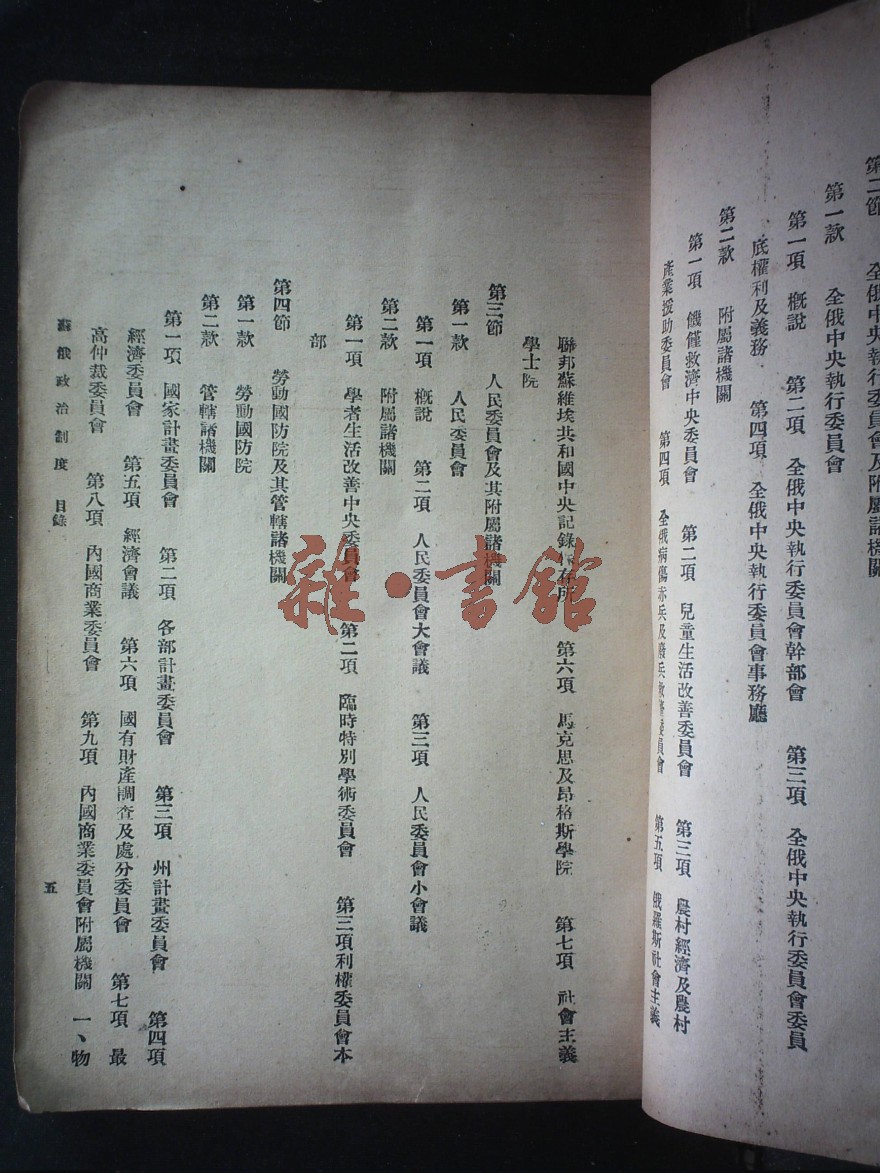 第二節　全俄中央執行委員會及附屬諸機關
第一款　全俄中央執行委員會
第一項　概說　第二項　全俄中央執行委員會幹部會　第三項　全俄中央執行委員會委員
底權利及義務　第四項　全俄中央執行委員會事務廳
第二款　附屬諸機關
第一項　饑饉救濟中央委員會　第二項　兒童生活改善委員會　第三項　農村經濟及農村
產業援助委員會　第四項　全俄病傷赤兵及廢兵救濟委員會　第五項　俄羅斯社會主義
聯邦蘇維埃共和國中央記錄保存所　第六項　馬克思及昂格斯學院　第七項　社會主義
學士院
第三節　人民委員會及其附屬諸機關
第一款　人民委員會
第一項　概說　第二項　人民委員會大會議　第三項　人民委員會小會議
第二款　附屬諸機關
第一項　學者生活改善中央委員會　第二項　臨時特別學術委員會　第三項利權委員會本
部
第四節　勞動國防院及其管轄諸機關
第一款　勞動國防院
第二款　管轄諸機關
第一項　國家計畫委員會　第二項　各部計畫委員會　第三項　州計畫委員會　第四項
經濟委員會　第五項　經濟會議　第六項　國有財產調查及處分委員會　第七項　最
高仲裁委員會　第八項　內國商業委員會　第九項　內國商業委員會附屬機關　一、物
蘇俄政治制度　目錄
五
雜·書館